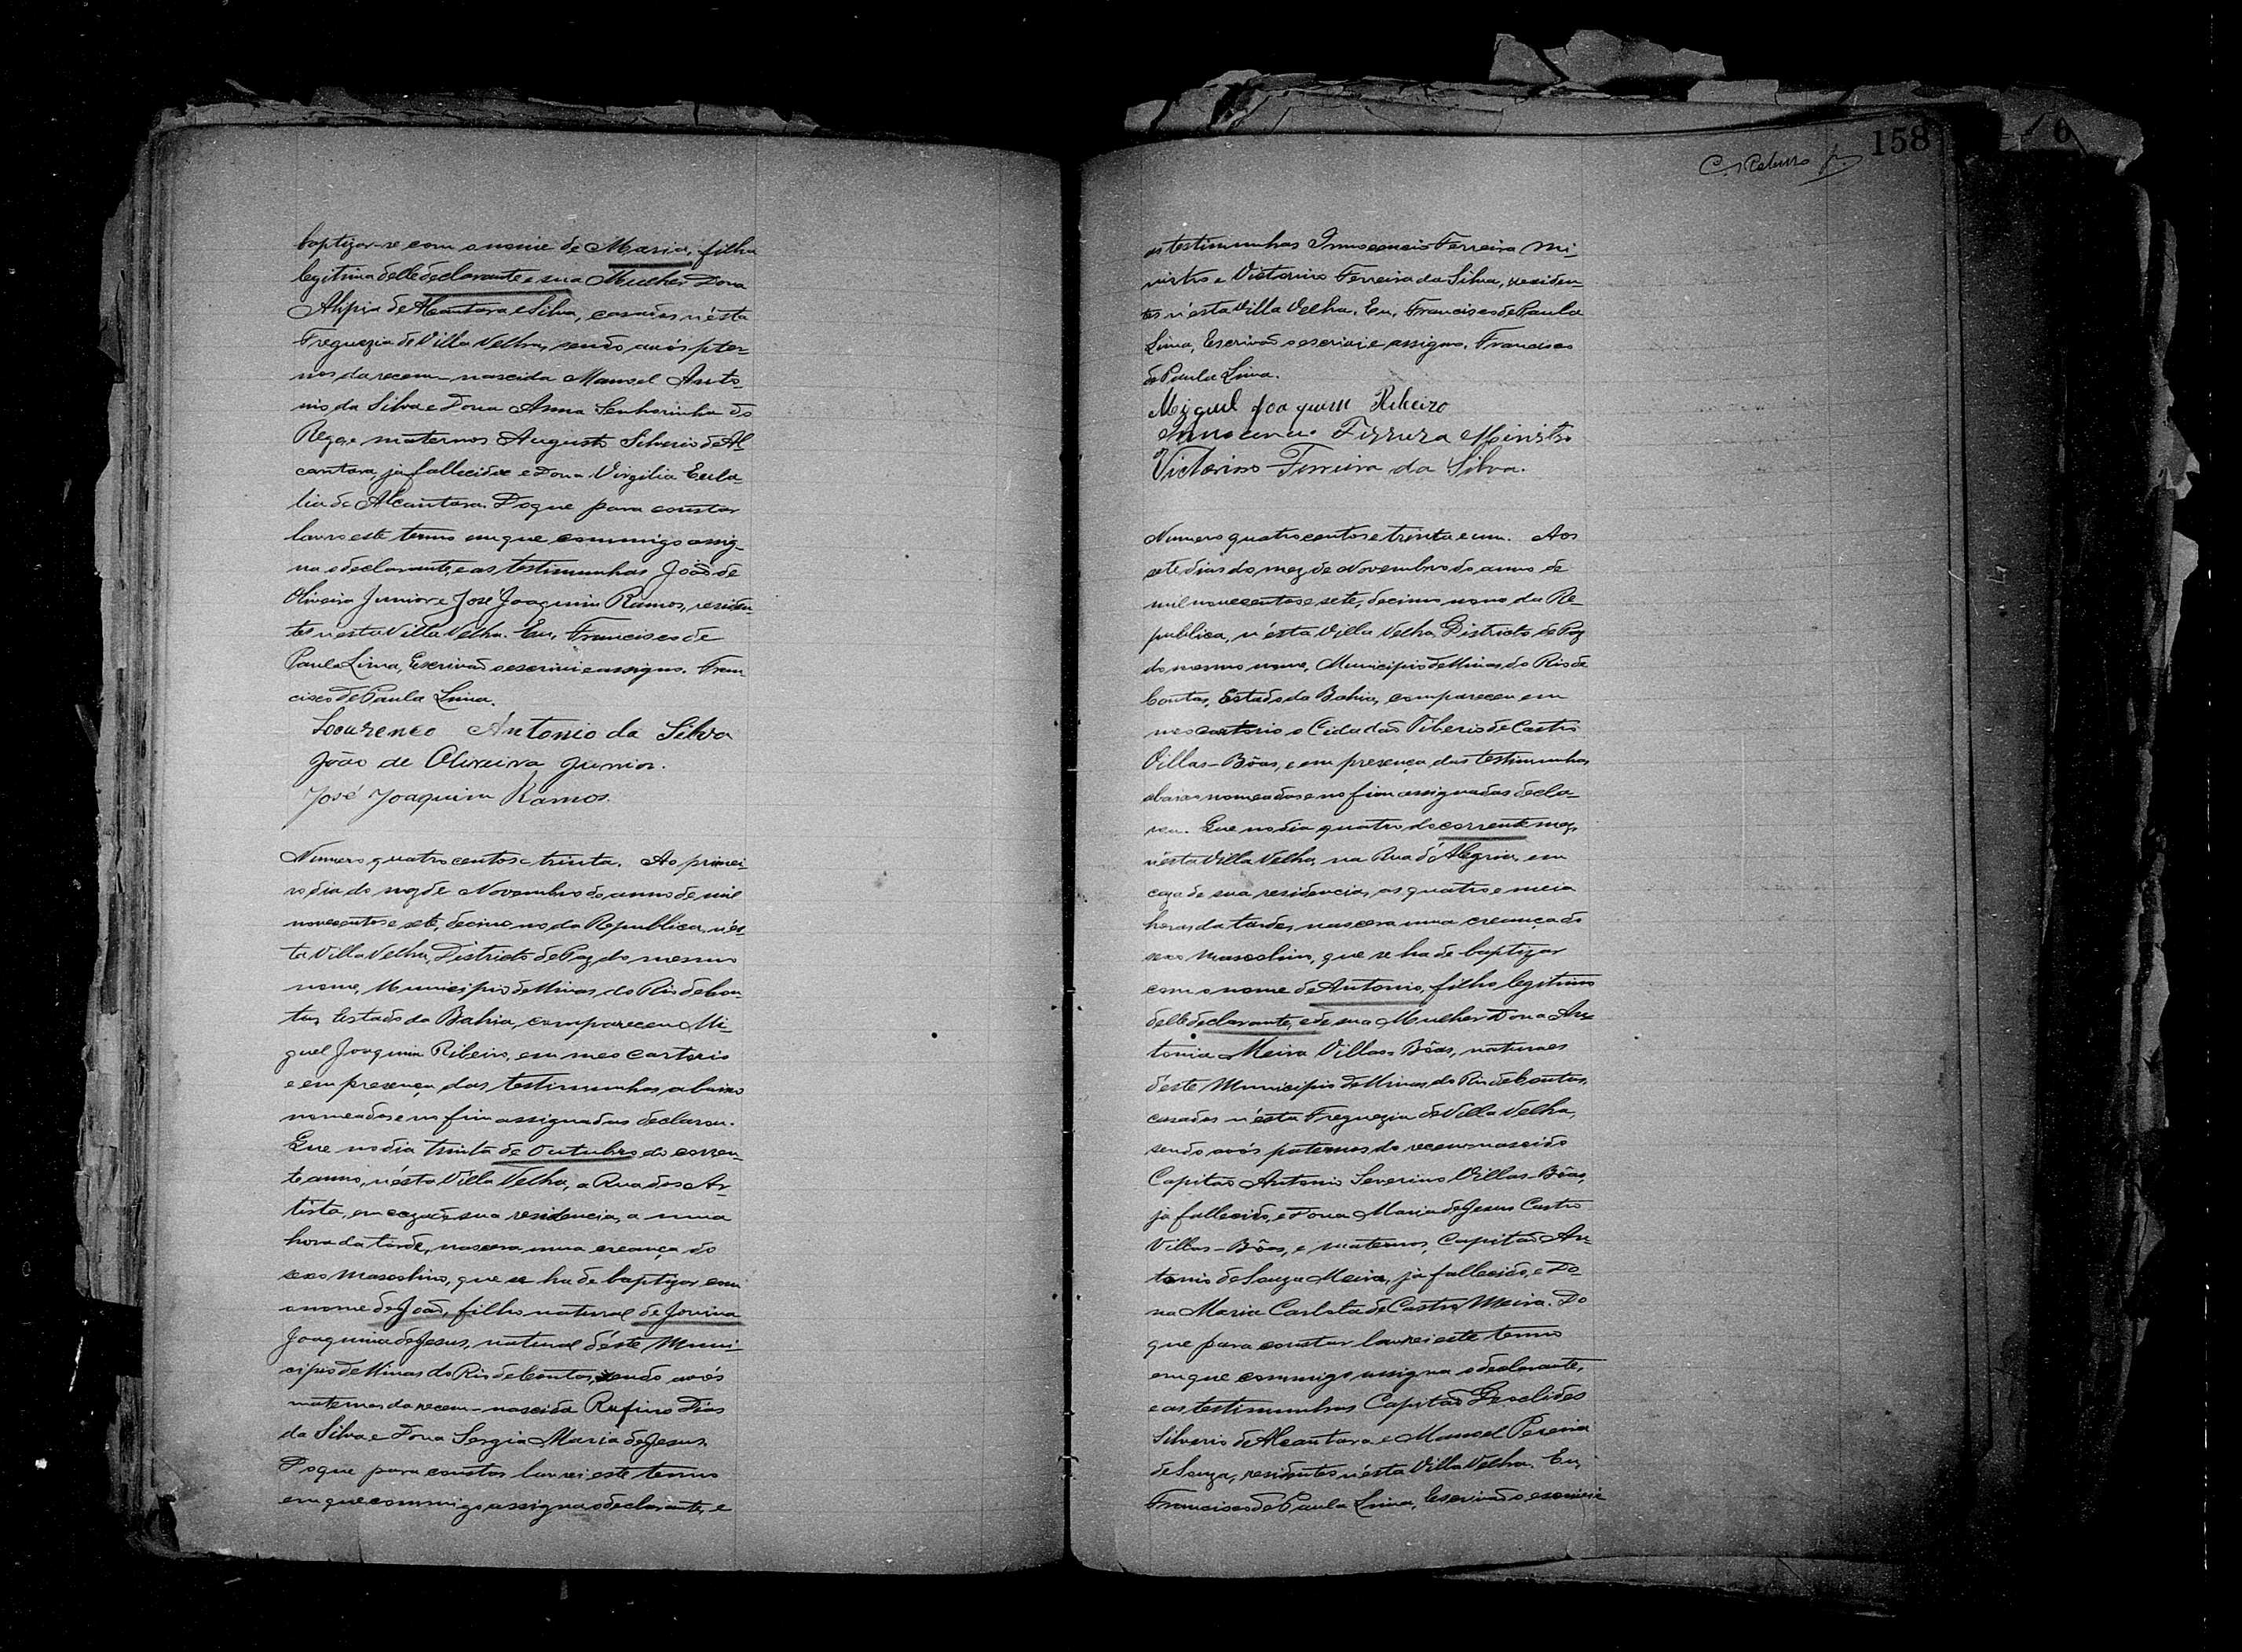 baptizar-se com o nome de Maria, filha
legitima delle declarante e sua Mulher Dona
Alipia de Alcantara e Silva, casados n'ésta
Freguezia de Villa Velha, sendo avós pter-
nos da recem-nascida Manoel Anto-
nio da Silva e Dona Anna Senhorinha do
Rego e maternos Augusto Silverio de Al-
cantara, já fallecido e Dona Virgilia Eula-
lia de Alcantara. Do que para constar
lavro este termo em que commigo assig-
na o declarante, e as testimunhas João de
Oliveira Junior e José Joaquim Ramos, residen
tes n'esta Villa Velha. Eu, Francisco de
Paula Lima, Escrivão o escrivi e assigno. Fran
cisco de Paula Lima.
Lourenco Antonio da Silva
João de Oliveira Junior.
José Joaquim Ramos.
Numero quatro centos e trinta. Ao primei-
ro dia do mez de Novembro do anno de mil
novecentos e sete, decimo no da Republica, n'és-
ta Villa Velha, Districto de Paz do mesmo
nome, Municipio de Minas do Rio de Con-
tas, Estado da Bahia, compareceu Mi-
guel Joaquim Ribeiro, em meo cartorio
e em presença das testimunhas abaixo
nomeadas e no fim assignadas declarou.
Que no dia trinta de Outubro do corren-
te anno, n'ésta Villa Velha, a Rua dos Ar-
tista, em caza de sua residencia, a uma
hora da tarde, nascera uma creança do
sexo masculino, que se ha de baptizar com
o nome de João, filho natural de Jovina
Joaquina de Jesus, natural d'éste Muni-
cipio de Minas do Rio de Contas, sendo avós
maternos da recem-nascida Rufino Dias
da Silva e Dona Sergia Maria de Jesus.
Do que para constar lavrei este termo
em que commigo assigna o declarante, e
158
as testimunhas Innocencio Ferreira Mi-
nistro e Victorino Ferreira da Silva, residen-
tes n'ésta Villa Velha. Eu, Francisco de Paula
Lima, Escrivão o escrivi e assigno. Francisco
de Paula Lima.
Miguel Joaquim Ribeiro
Innocencio Ferrera Ministro
Victorino Ferreira da Silva.
Numero quatro centos e trinta e um. Aos
sete dias do mez de Novembro do anno de
mil novecentos e sete, decimo nono da Re-
publica, n'ésta Villa Velha, Districto de Paz
do mesmo nome, Municipio de Minas do Rio de
Contas, Estado da Bahia, compareceu em
meo cartorio o Cidadão Tiberio de Castro
Villas-Bôas, e em presença das testimunhas
abaixo nomeadas e no fim assignadas decla-
rou. Que no dia quatro do corrente mez,
n'ésta Villa Velha, na Rua d'Alegria, em
caza de sua residencia, as quatro e meia
horas da tarde, nascera uma creança do
sexo masculino, que se ha de baptizar
com o nome de Antonio, filho legitimo
delle declarante, e de sua Mulher Dona An-
tonia Meira Villas-Bôas, naturaes
d'éste Municipio de Minas do Rio de Contas,
casados n'ésta Freguezia de Villa Velha,
sendo avós paternos do recem-nascido
Capitão Antonio Severino Villas-Bôas,
já fallecido, e Dona Maria de Jesus Castro
Villas-Bôas, e maternos, Capitão An-
tonio de Souza Meira, já fallecido, e Do-
na Maria Carlota de Castro Meira. Do
que para constar lavrei este termo
em que commigo assigna o declarante,
e as testimunhas Capitão Deoclides
Silverio de Alcantara e Manoel Pereira
de Souza, residentes n'ésta Villa Velha. Eu,
Francisco de Paula Lima, Escrivão o escrivi e